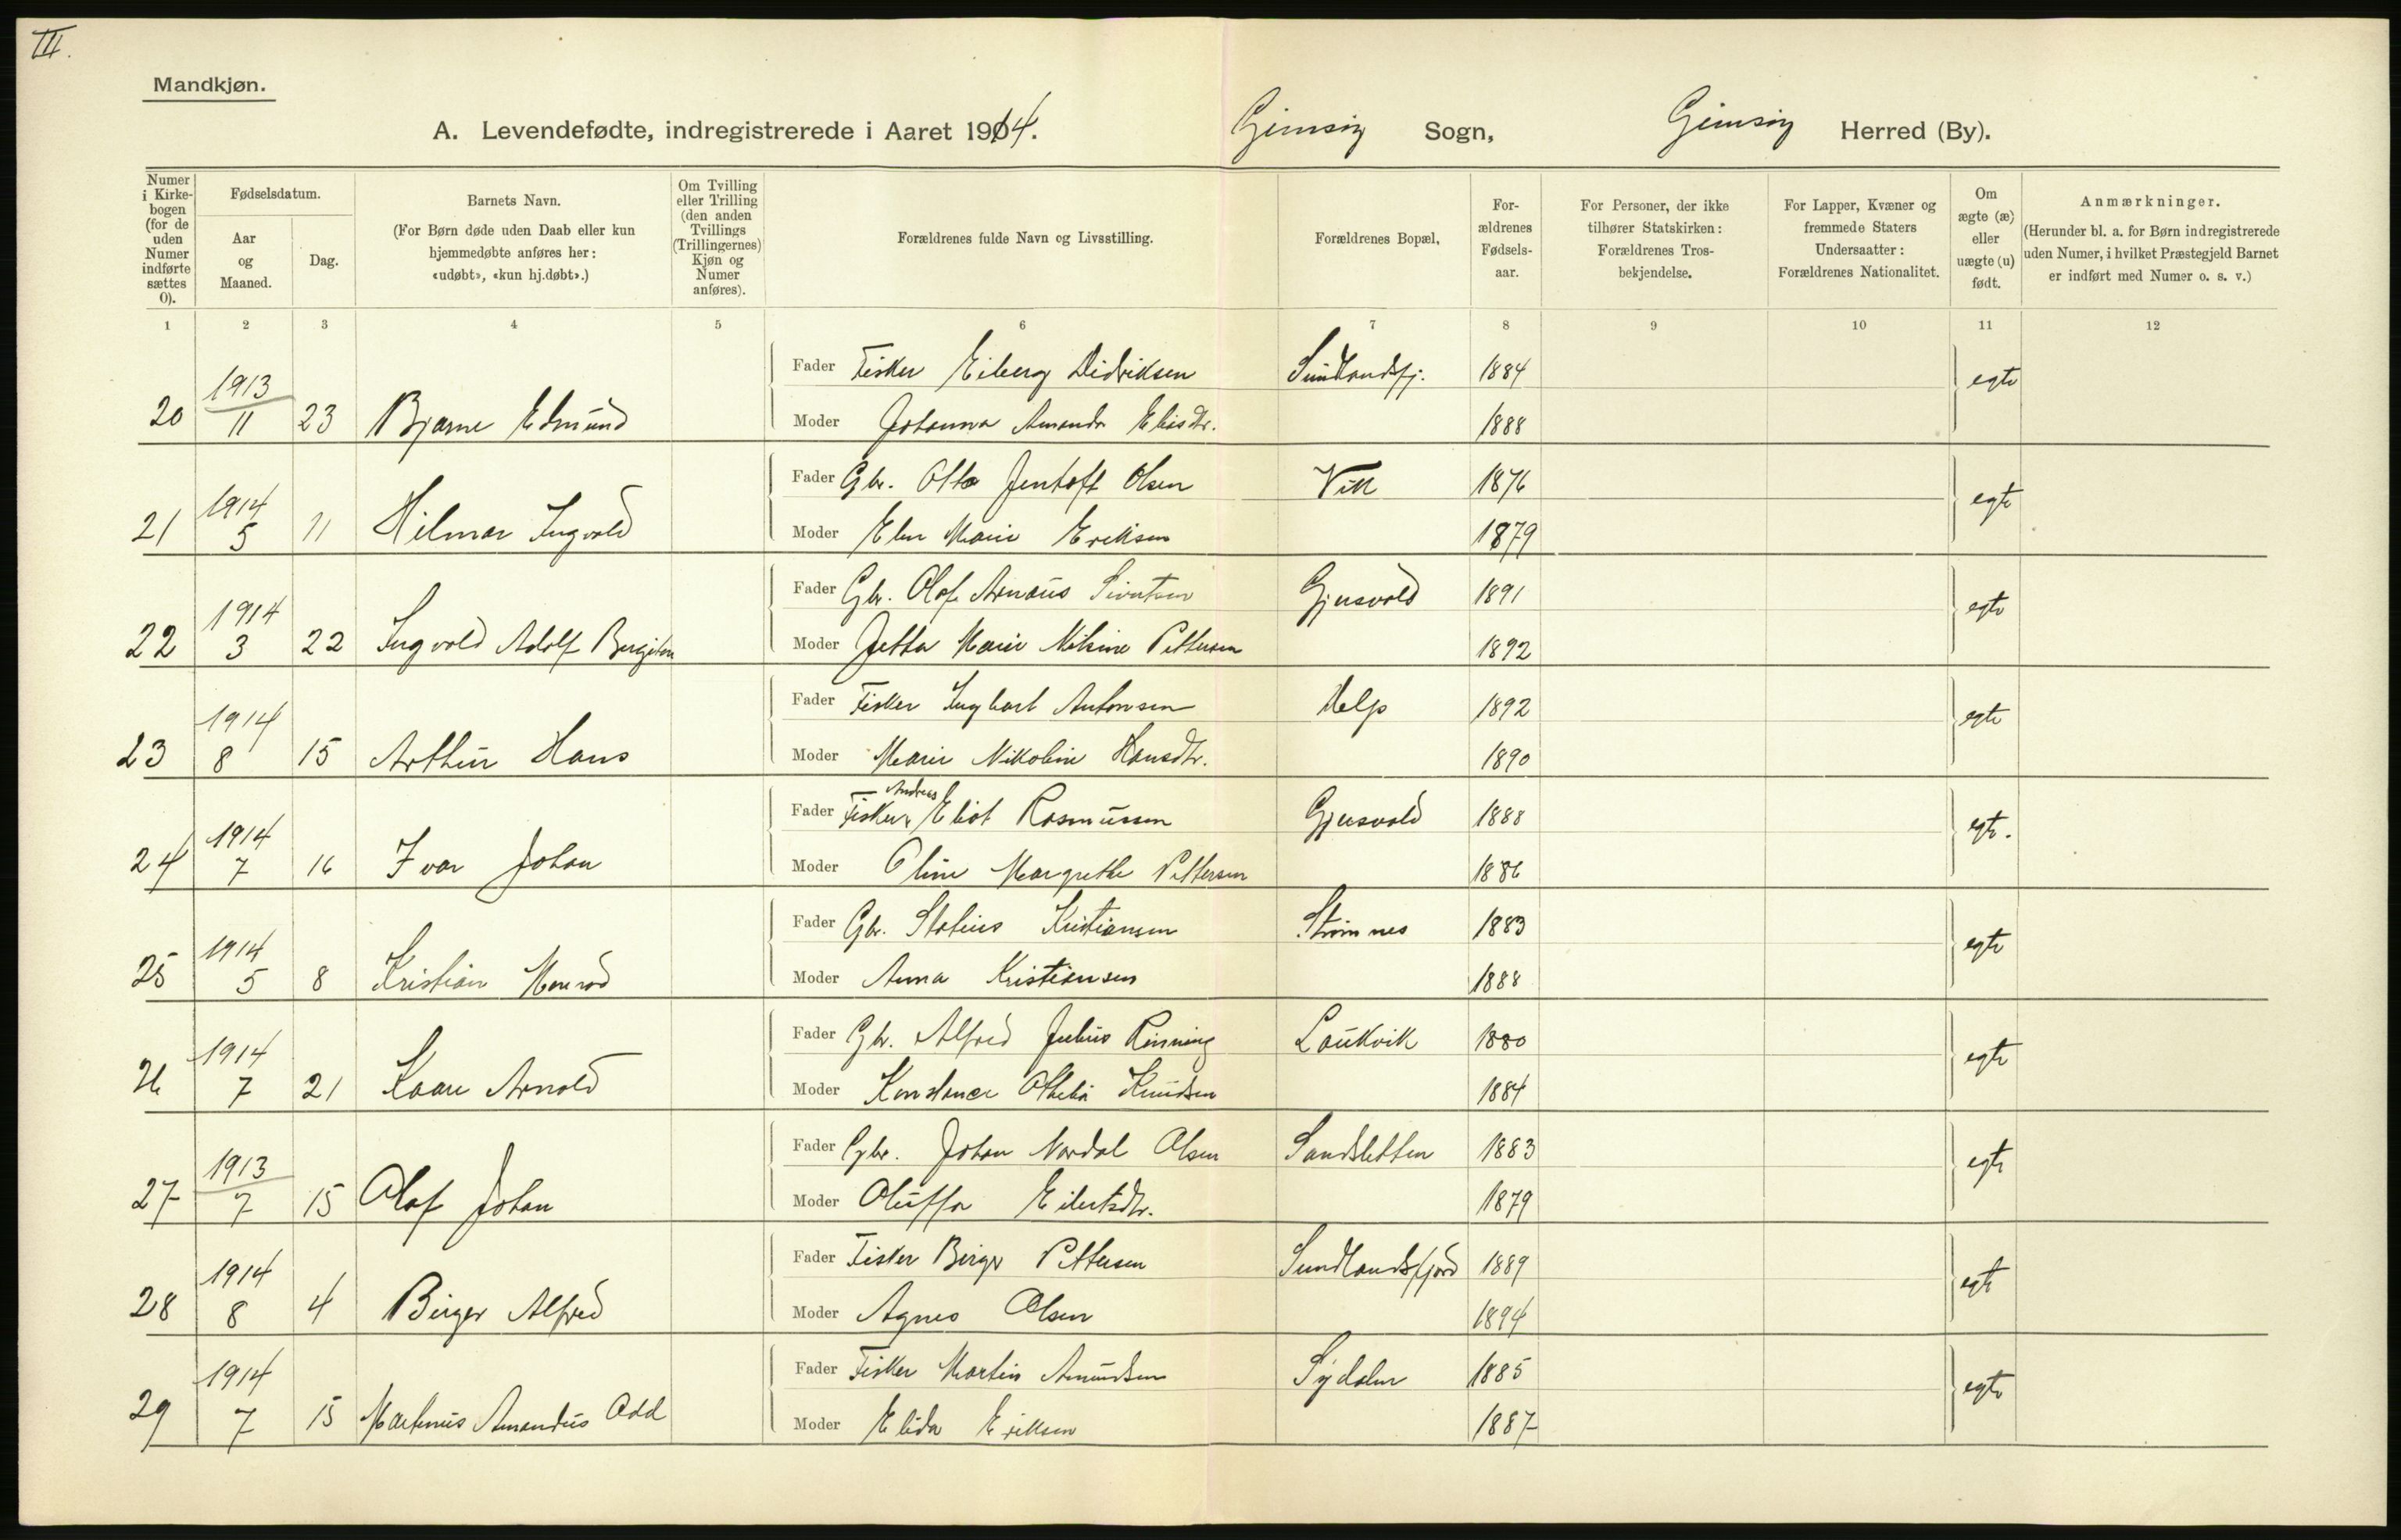 III.
Mandkjøn.
A. Levendefødte, indregistrerede i Aaret 1914. Gimsøy Sogn, Gimsøy Herred (By).
Numer i Kirkebogen (for de uden Numer indførte sættes 0).
Fødselsdatum.
Aar og Maaned.
Dag.
Barnets Navn.
(For Børn døde uden Daab eller kun hjemmedøbte anføres her: «udøbt», «kun hj.døbt».)
Om Tvilling eller Trilling (den anden Tvillings (Trillingernes) Kjøn og Numer anføres).
Forældrenes fulde Navn og Livsstilling.
Forældrenes Bopæl,
Forældrenes Fødselsaar.
For Personer, der ikke tilhører Statskirken: Forældrenes Trosbekjendelse.
For Lapper, Kvæner og fremmede Staters Undersaatter: Forældrenes Nationalitet.
Om ægte (æ) eller uægte (u) født.
Anmærkninger.
(Herunder bl. a. for Børn indregistrerede uden Numer, i hvilket Præstegjeld Barnet er indført med Numer o. s. v.)
1 2 3 4 5 6 7 8 9 10 11 12
Fader Fisker Eiberg Didriksen Sundlandsfj. 1884 egte
20 1913 11 23 Bjarne Edmund
Moder Johanna Amanda Eliasdtr. 1888
Fader Gbr. Otto Jentoft Olsen Vik 1876 egte
21 1914 5 11 Hilmar Ingvald
Moder Elen Marie Eriksen 1879
Fader Gbr. Olaf Arnäus Sivertsen Gjusvold 1891 egte
22 1914 3 22 Ingvald Adolf Bergiton
Moder Jetta Marie Nilsine Pettersen 1892
Fader Fisker Ingbart Antonsen Help 1892 egte
23 1914 8 15 Arthur Hans
Moder Marie Nikoline Hansdtr. 1890
Fader Fisker Andreas Eliot Rasmussen Gjusvold 1888 egte.
24 1914 7 16 Ivar Johan
Moder Oline Margrethe Pettersen 1886
Fader Gbr. Statius Kristiansen Strømnes 1883 egte
25 1914 5 8 Kristian Monrad
Moder Anna Kristiansen 1888
Fader Gbr. Alfred Julius Rinning Laukvik 1880 egte
26 1914 7 21 Kaare Arnold
Moder Konstance Othelia Knudsen 1884
Fader Gbr. Johan Nordal Olsen Sandsletten 1883 egte
27 1913 7 15 Olaf Johan
Moder Oluffa Eilertsdtr. 1879
Fader Fisker Birger Pettersen Sundlandsfjord 1889 egte
28 1914 8 4 Birger Alfred
Moder Agnes Olsen 1894
Fader Fisker Martin Amundsen Sydalen 1885 egte
29 1914 7 15 Martinus Amandus Odd
Moder Elida Eriksen 1887